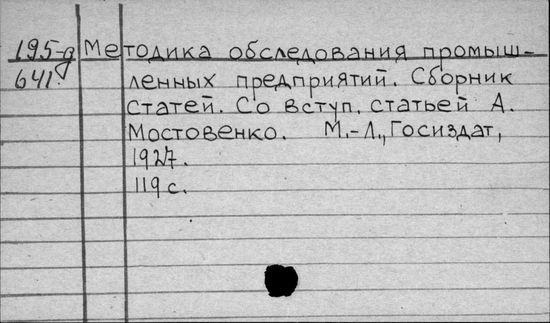 195-д Методика обследования промыш-
641. ленных предприятий. Сборник
статей. Со вступ. статьей А.
Мостовенко. М.-Л., Госиздат,
1927.
119 с.